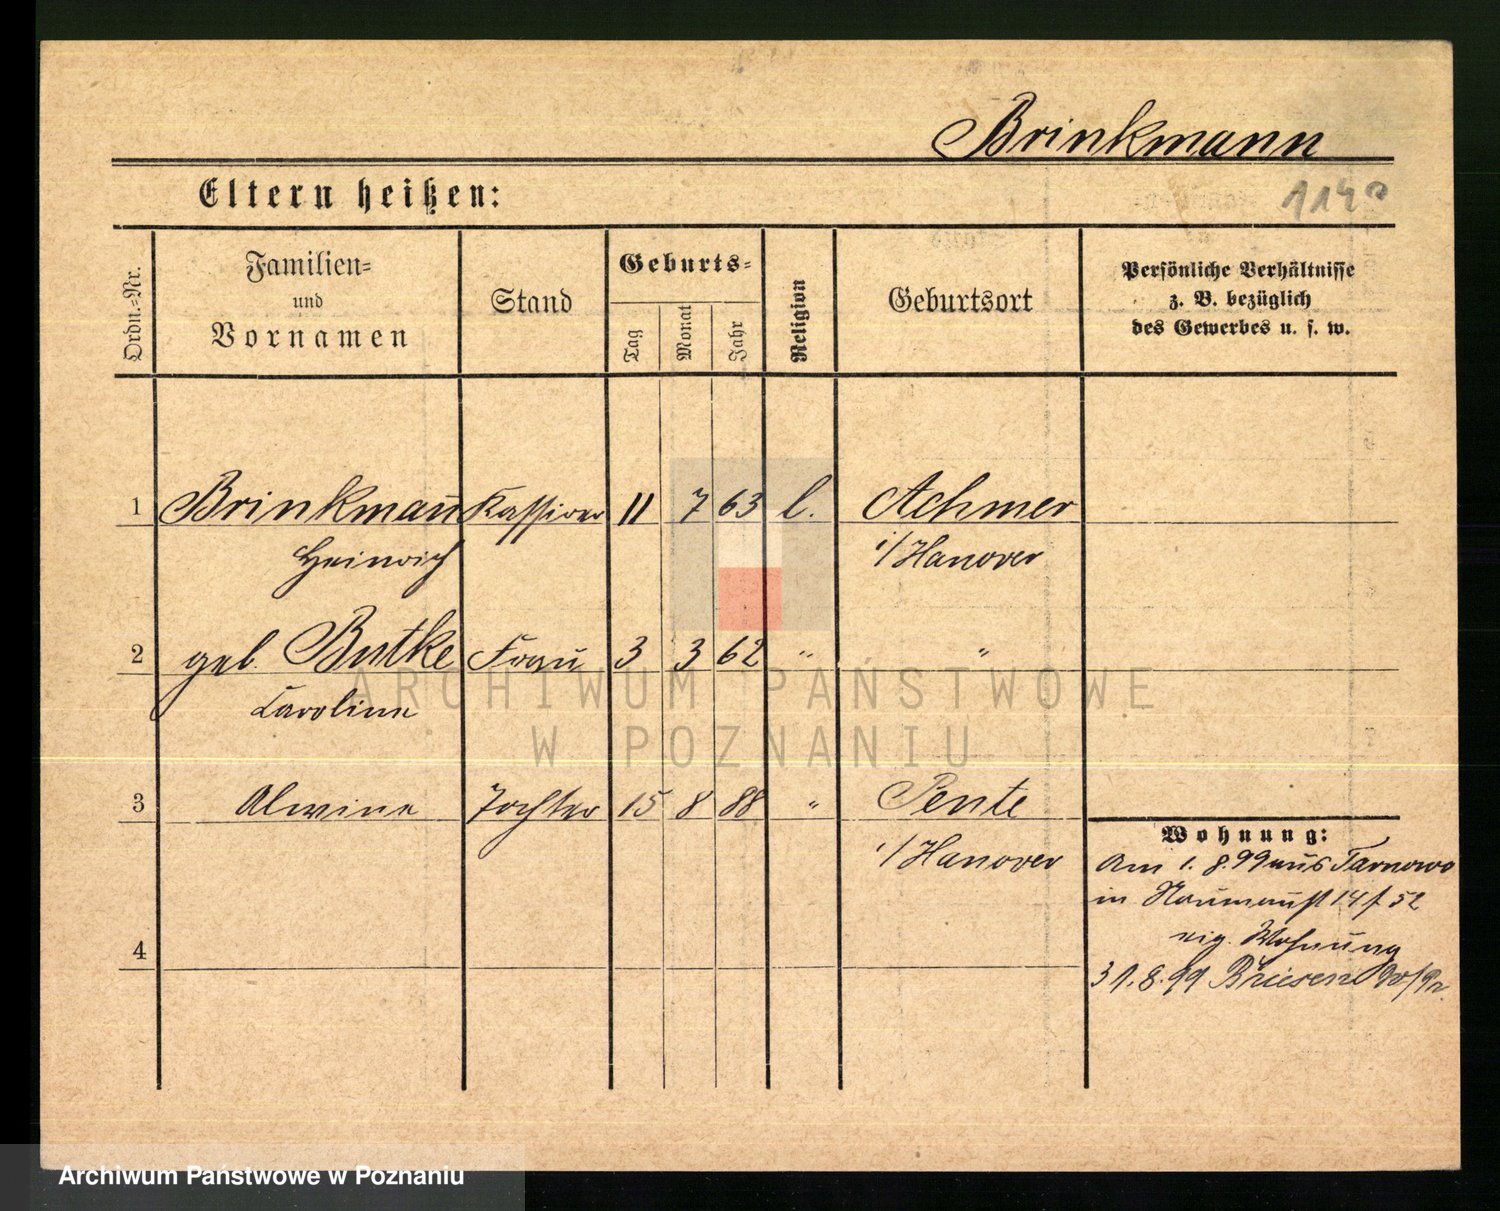 Brinkmann
Eltern heißen:
Ordn.=Nr.
Familien=
und
Vornamen
Stand
Geburts=
Tag
Monat
Jahr
Religion
Geburtsort
Persönliche Verhältnisse
z. B. bezüglich
des Gewerbes u. s. w.
1 Brinkman̄ Kassirer 11 7 63 l. Achmer
Heinrich i/Hanover
2 geb. Butke Frau 3 3 62 " "
Caroline
3 Alwine Tochter 15 8 88 " Pente
i/Hanover
Wohnung:
Am 1. 8. 99 aus Tarnowo
in Naumanst 14 f 52
eig. Wohnung
4
31. 8. 99 Briesen W/Pr.
ARCHIWUM PAŃSTWOWE
W POZNANIU
Archiwum Państwowe w Poznaniu